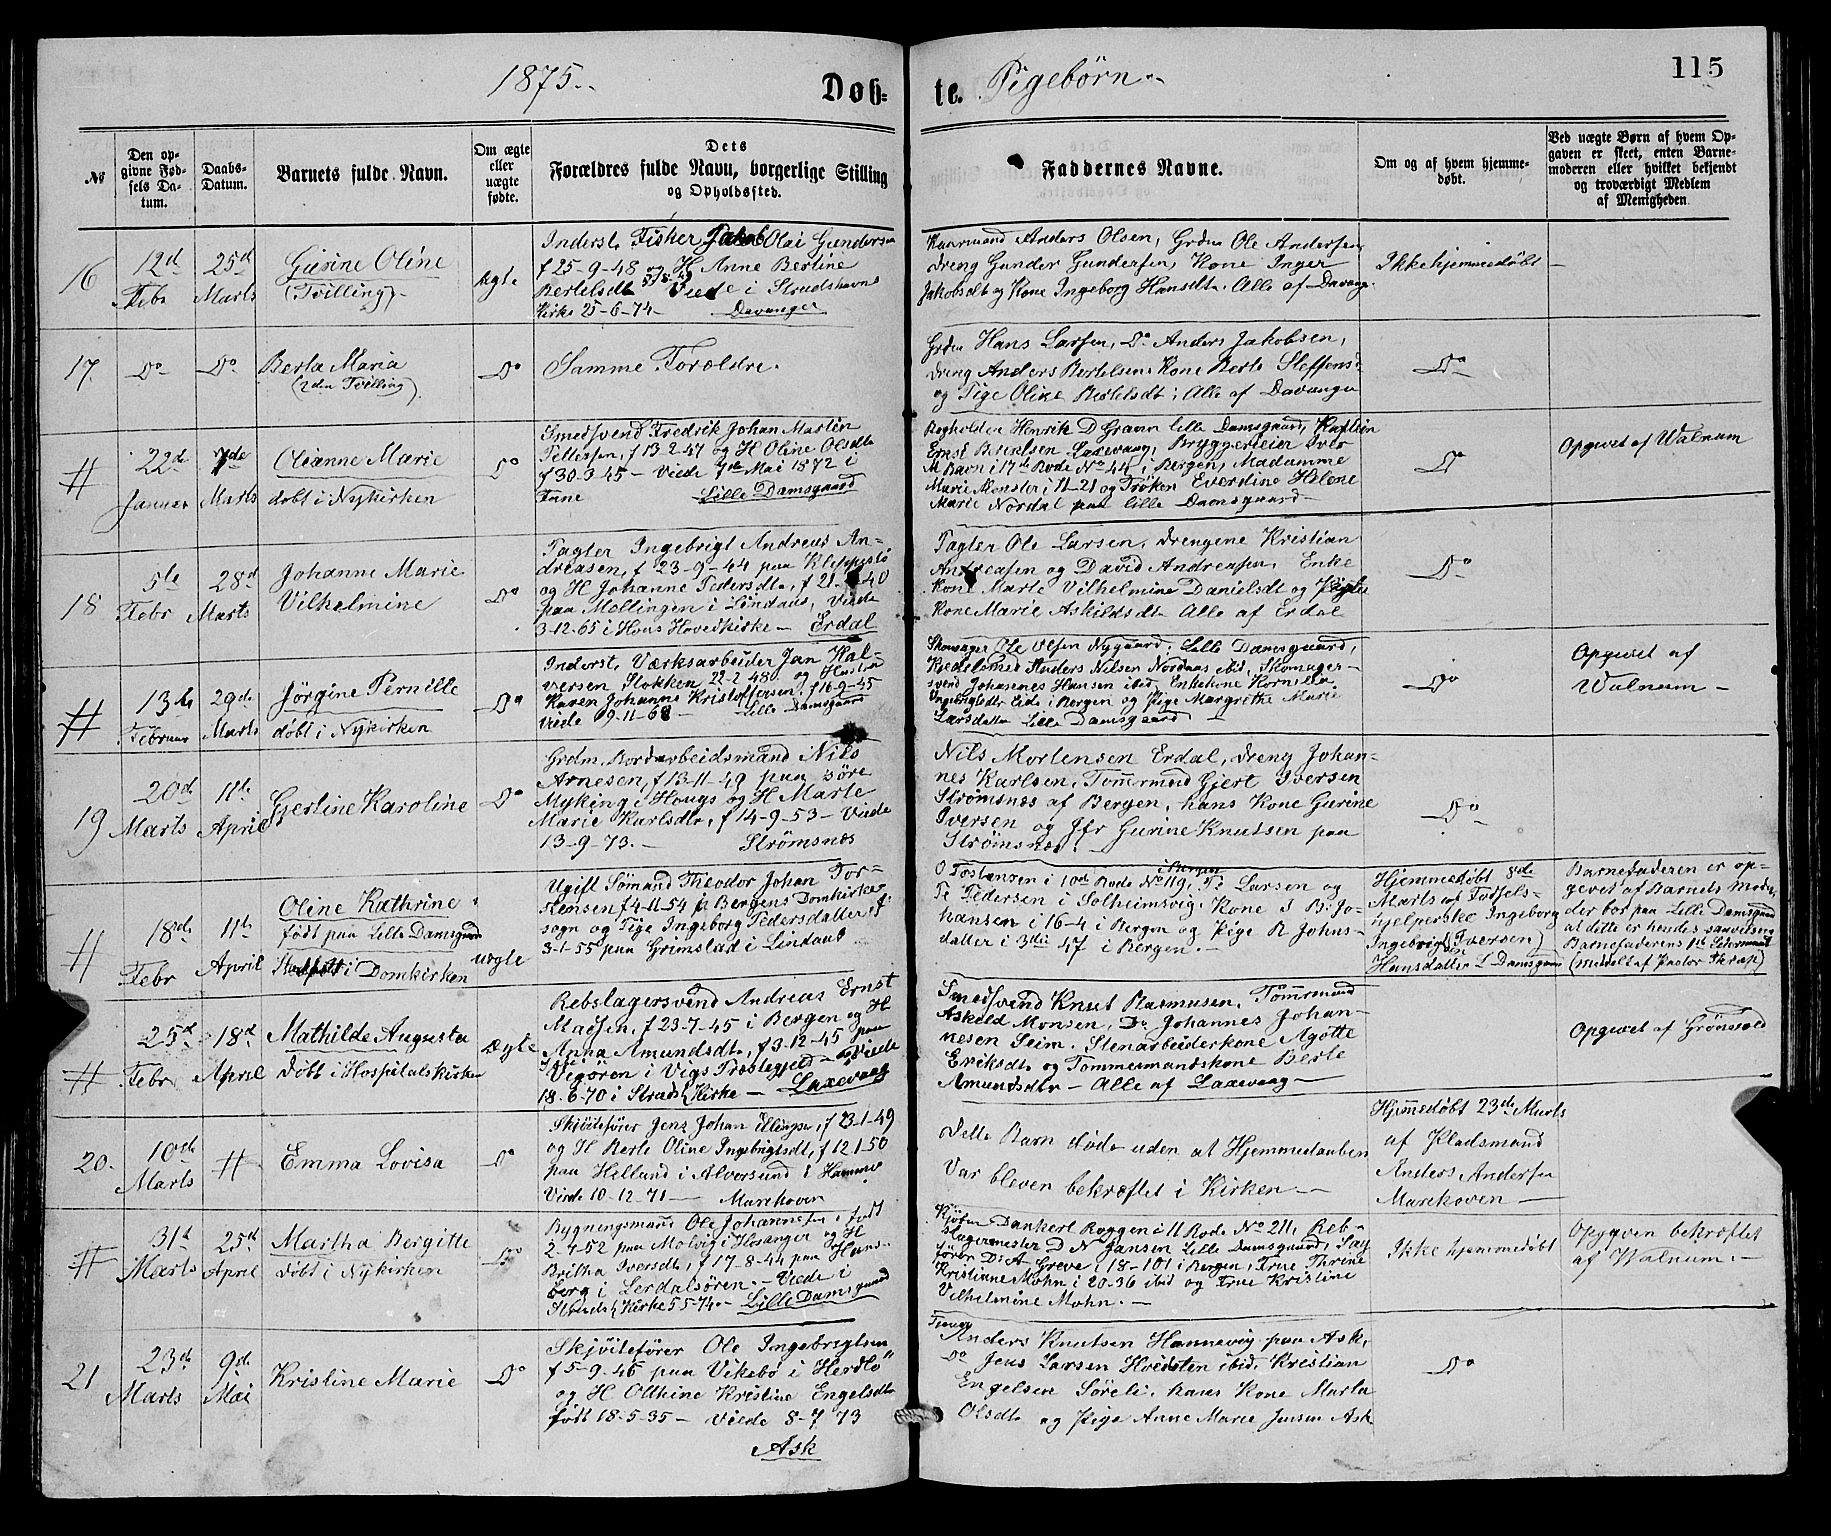 1875.
Døb-
te.
Pigebørn
115
№
Den op-
givne Fød-
sels Da-
tum.
Daabs-
Datum.
Barnets fulde Navn.
Om ægte
eller
uægte
fødte.
Dets
Forældres fulde Navn, borgerlige Stilling
og Opholdssted.
Faddernes Navne.
Om og af hvem hjemme-
døbt.
Ved uægte Børn af hvem Op-
gaven er skeet, enten Barne-
moderen eller hvilket bekjendt
og troværdigt Medlem
af Menigheden.
16
12d
Febr
25d
Marts
Gurine Oline
(Tvilling)
Ægte
Inderst Fisker Jakob Olai Gundersen
f 25-9-48 og H Anne Bertine
Bertelsdtr Viede i Strudshavns
Kirke 25-6-74 Davanger
Anders Olsen, Grdm Ole Andersen,
Dreng Gunder Gundersen, Kone Inger
Jakobsdt og Kone Ingeborg Hansdt. Alle af Davanger
Ikke hjemmedøbt
17.
Do
Do
Berta Maria
(2den Tvilling)
Do
Samme Forældre.
Grdm Hans Larsen, Do Anders Jakobsen,
Dreng Anders Bertelsen, Kone Berte Steffensd
og Pige Oline Bertelsdt: Alle af Davanger
Do
#
22de
Januar
7de
Marts
Olianne Marie
døbt i Nykirken
Do
Smedsvend Fredrik Johan Martin
Tellissen, f 13-2-47 og H Oline Olsdtr
f 30-3-45 - Viede 7de Mai 1872 i
Fane Lille Damsgaard
Bogholder Henrik D Grann lille Damsgaard, Kaptein
Ernst Bertelsen Laxevaag, Bryggerieier Iver
M Bavn i 17de Rode No 44 i Bergen, Madamme
Marie Monster i 11-21 og Frøken Everdine Helene
Marie Nordal paa lille Damsgaard
Do
Opgivet af Walnum
18
5te
Febr
28d
Marts
Johanne Marie
Vilhelmine
Do
Pagter Ingebrigt Andreas An-
dreasen, f 23-9-44 paa Kleppestø
og H Johanne Pedersdt, f 21- 40
paa Mollingen i Lindaas, Viede
3-12-65 i Hous Hovedkirke - Erdal
Pagter Ole Larsen, Drengene Kristian
Andreasen og David Andreasen, Enke
Kone Marte Vilhelmine Danielsdt og Pagter
Kone Marie Askildsdt Alle af Erdal
Do
#
13de
Februar
29de
Marts
Jörgine Pernille
døbt i Nykirken
Do
Inderst, Værksarbeider Jan Hal-
versen Stokken 22-2 48 og Hustru
Karen Johanne Kristoffersen, f 16-9-45
Viede 9-11-68 - Lille Damsgaard
Skomager Ole Olsen Nygaard, Lille Damsgaard,
Kjedelsmed Anders Nilsen Nordnæs ibid, Skomager-
svend Johannes Hansen ibid, Enkekone Kornilia
i Bergen og Pige Margrethe Marie
Larsdatter Lille Damsgaard
Do
Opgivet af
Walnum -
19
20d
Marts
11te
April
Gjertine Karoline
Do
Grdm, Jordarbeidsmand Nils
Arnesen, f 13-11-49 paa søre
Myking i Hougs og H Marte
Marie Karlsdtr, f 14-9-53 - Viede
13-9-73. - Strømsnæs
Nils Mortensen Erdal, Dreng Johan-
nes Karlsen, Tømmermand Gjert Iversen
Strømsnæs af Bergen, hans Kone Gurine
Iversen og Jfr Gurine Knutsen paa
Strømsnæs.
Do
#
18de
Febr
11te
April
Oline Kathrine
født paa Lille Damsgaard
i Domkirken
uægte
Ugift Sømand Theodor Johan Tor-
stensen f 4-11-54 fra Bergens Domkirke
sogn og Pige Ingeborg Pedersdatter, f
3-1-55 paa Grimstad i Lindaas
O Tostensen i 10d Rode No 119, i Bergen Larsen og
Pedersen i Solheimsvig, Kone J B Jo-
hansen i 16-4 i Bergen og Pige R Johns-
datter i 3die 47 i Bergen. -
Hjemmedøbt 8de
Marts af Fødsels-
hjelperske Ingeborg
Ingebrigt Iversen)
Hansdatter L Damsgaard
Barnefaderen er op-
givet af Barnets Mode,
der bor paa Lille Damsgaard
at dette er hendes samversens
Barnefaderens 1ste
(meddelt af Pastor Skrap)
#
25de
Febr
18d
April
Mathilde Augusta
døbt i Hospitalskirken
Ægte
Rebslagersvend Andreas Ernst
Madsen, f 23-7-45 i Bergen og H
Anna Amundsdtr, f 3-12-45 paa
Vigøren i Vigs Præstegjeld - Viede
18-6-70 i Strudsh Kirke - Laxevaag
Smedsvend Knut Rasmusen, Tømmermand
Askeld Monsen, Do Johannes Johan-
nesen Seim, Stenarbeiderkone Agotte
Eriksdt og Tømmermandskone Berte
Amundsdtr - Alle af Laxevaag -
Opgivet af Grönvold
20.
10de
Marts
#
Emma Lovisa
Do
Skjöitefører Jens Johan Ellingsen, f 23-1-49
og H Berte Oline Ingebrigtsdt, f 12 1 50
paa Helland i Alversund i Hammer
Viede 10-12-71 - Marekoven
Dette Barn døde uden at Hjemmedaaben
Var bleven bekræftet i Kirken -
Hjemmedøbt 23de Marts
af Pladsmand
Anders Andersen
Marekoven -
#
31te
Marts
25de
April
Martha Bergitte
døbt i Nykirken
Do
Bygningsmand Ole Johannesen, født
2-4-52 paa Molvig i Hosanger og H
Britha Iversdt, f 17-8-44 paa Haus-
berg i Lerdalsören. - Viede i
Strudsh Kirke 5 5-74 - Lille Damsgaard
Kjøbm Dankert Roggen i 11 Rode No 211, Reb-
slagermester D N Jansen Lille Damsgaard, Sag
förer D: A Greve i 18-101 i Bergen, Frue Thrine
Kristiane Mohn i 20-36 ibid og Frue Kristine
Vilhelmine Mohn. -
Ikke hjemmedøbt
Opgaven bekræftet
af Walnum. -
21
23de
Marts
9de
Mai
Kristine Marie
Do
Skjöitefører Ole Ingebrigtsen
f 5-9-46 paa Vikebø i Herdlø
og H Olthine Kristine Engelsdtr
født 18-5-35 - Viede 8-7 73
Ask
Anders Knutsen Hannevig paa Ask,
Do Jens Larsen Hvidsten ibid, Kristian
Engelsen Söreli, hans Kone Marta
Olsdtr og Pige Anne Marie Jensen Ask
Do